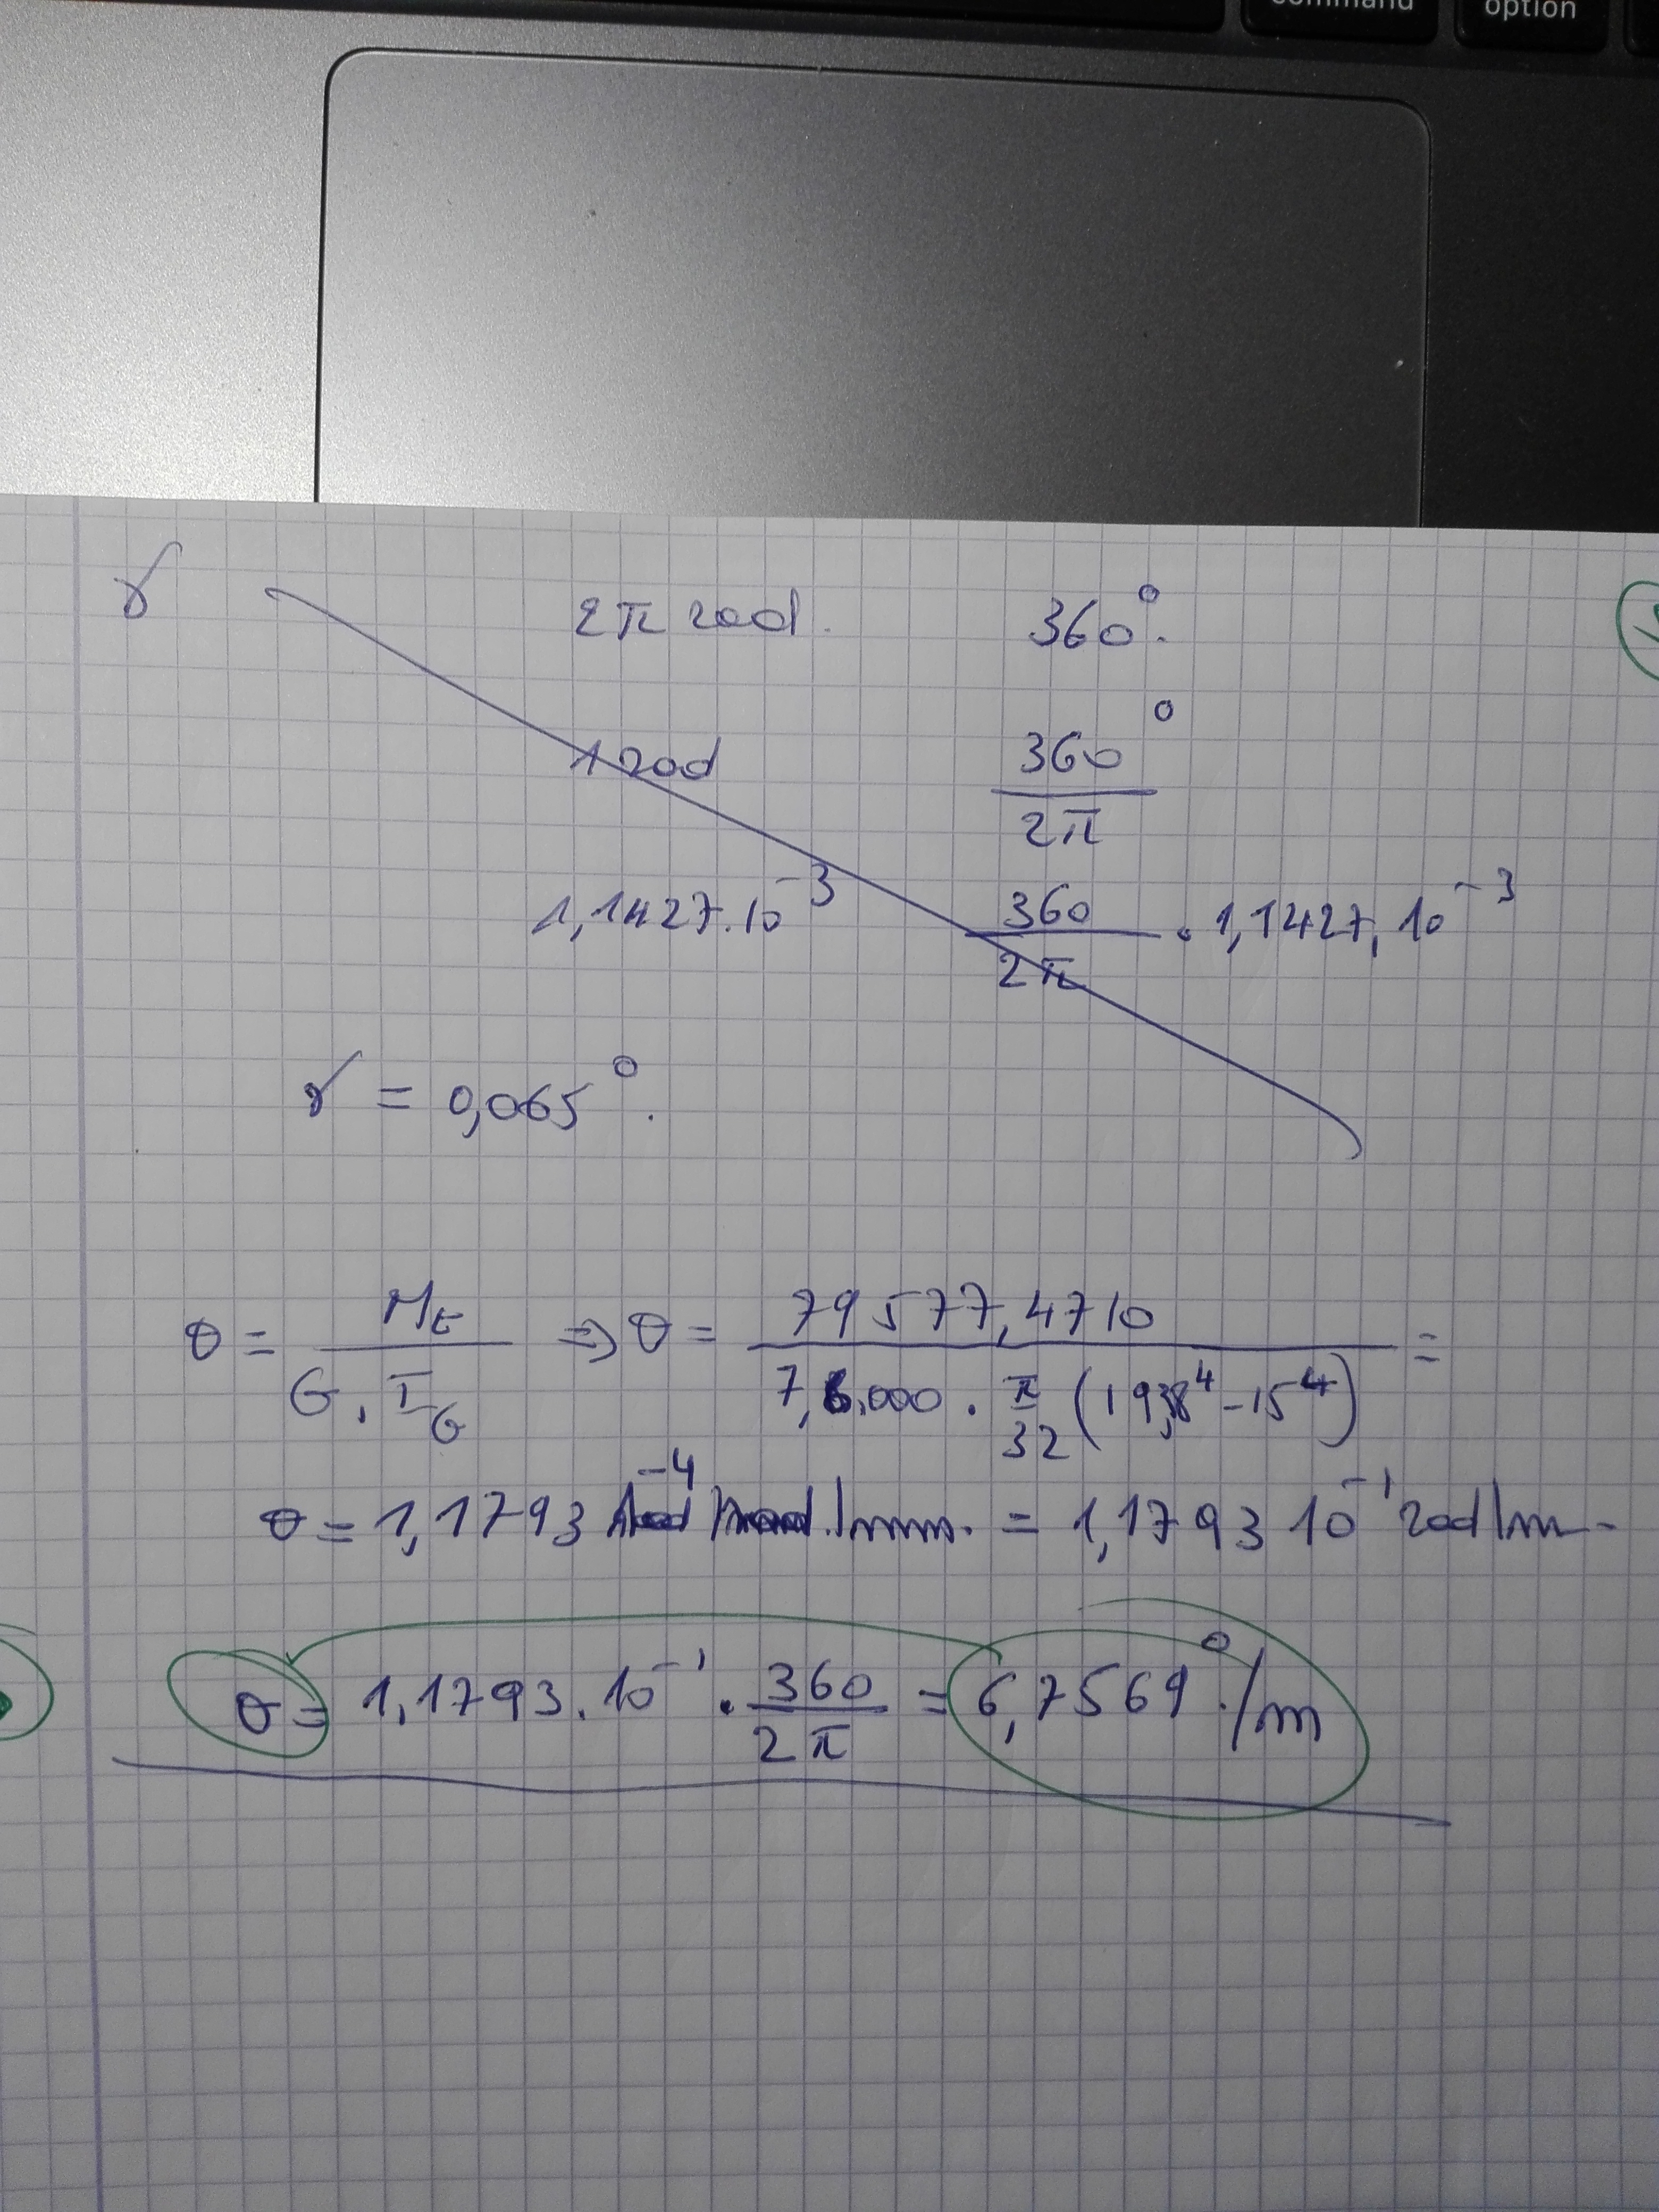 command option
γ 2π rad. 360°.
1 rad 360°/2π
1,1427.10⁻³ 360/2π . 1,1427.10⁻³
γ = 0,065°.
θ = Mt/G.IG ⇒ θ = 79577,4710/ . π/32 (19,38⁴-15⁴) =
θ = 1,1793 ⁻⁴ /mm. = 1,1793 10⁻¹ rad/m.
θ = 1,1793.10⁻¹ . 360/2π = 6,7569°/m